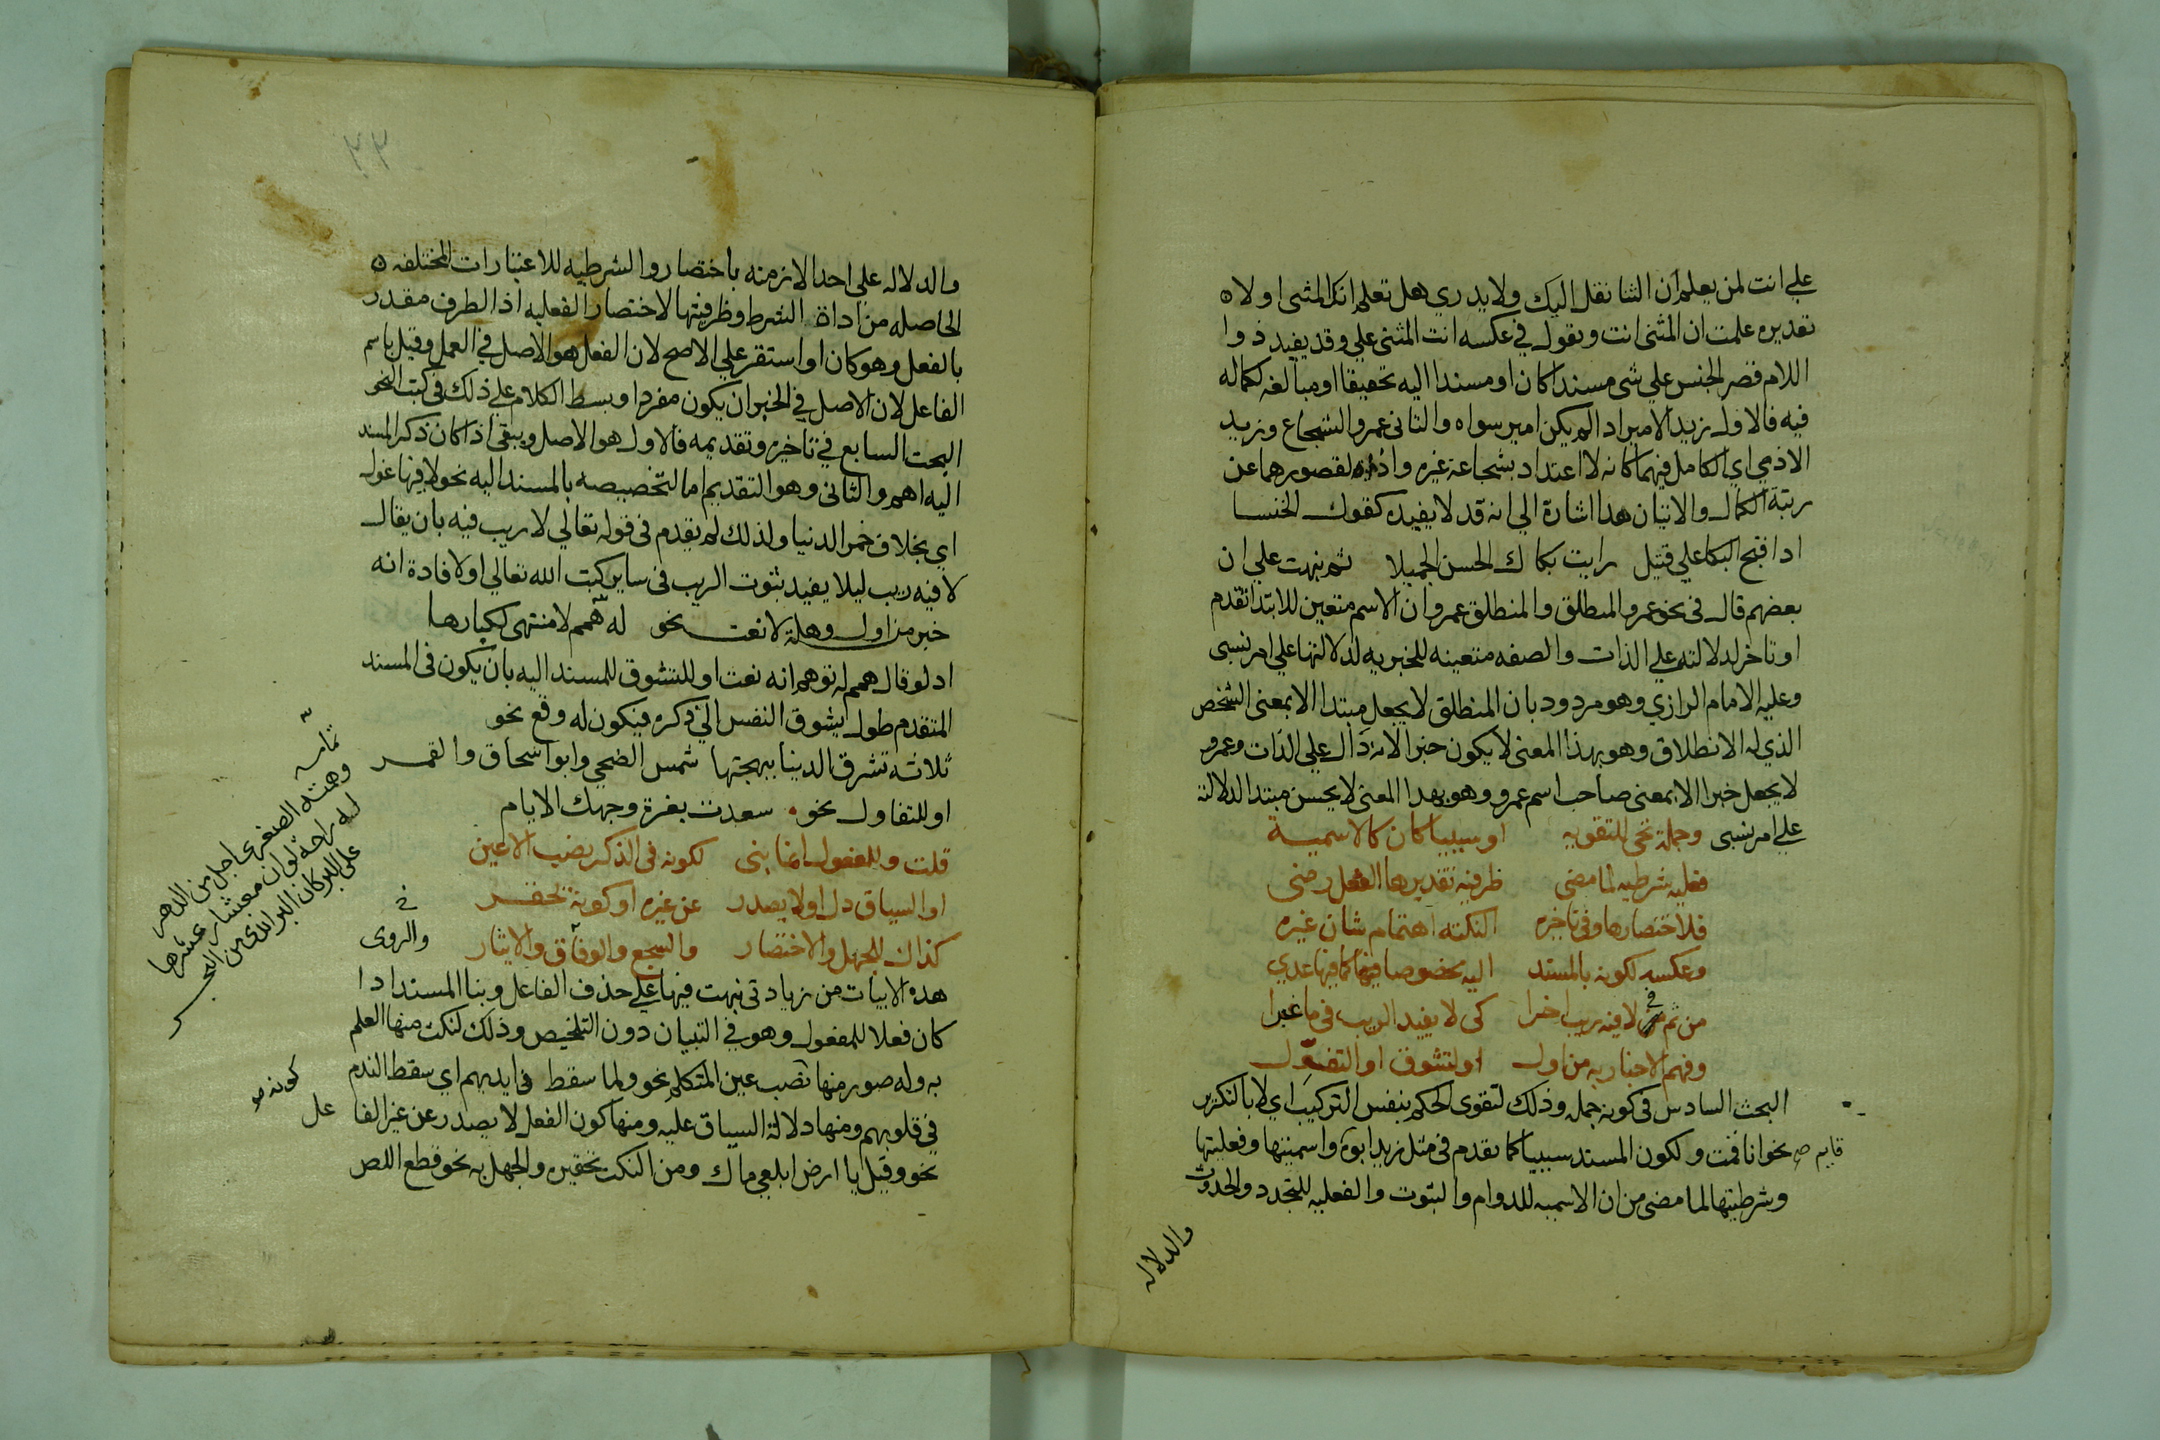 علي انت لمن يعلم ان الثنا نقل اليك ولا يدري هل تعلم انك المثنى اولاه
تقديره علمت ان المثنى انت وتقول في عكسه انت المثنى علي وقد يفيد ذوا
اللام قصر الجنس علي شي مسندا كان او مسندا اليه تحقيقا او مبالغه لكماله
فيه فالاول زيد الامير اد الم يكن امير سواه والثانى عمرو الشجاع وزيد
الاذي اي الكامل فيهما كانه لا اعتداد بشجاعة غيره لقصورهما عن
رتبة الكمال والاتيان هدا اشارة الي انه قد لا يفيده كقول الخنسا
ادا قبح البكا علي قتيل رايت بكاك الحسن الجميلا ثم نبهت علي ان
بعضهم قال في نحو عمرو المنطلق والمنطلق عمرو ان الاسم متعين للابتدا تقدم
او تاخر لدلالته علي الذات والصفه متعينه للخبريه لدلالتها علي امر نسبى
وعليه الامام الرازي وهو مردود بان المنطلق لا يجعل مبتدا الا بمعنى الشخص
الذي له الانطلاق وهو بهذا المعنى لا يكون خبرا لانه دال علي الذات وعمرو
لا يجعل خبرا الا بمعنى صاحب اسم عمرو وهو بهدا المعنى لا يحسن مبتدا لدلالته
علي امر نسبى وجملة تجي للتقويه او سببيا كان كالاسمية
فعليه شرطيه لما مضى ظرفيه تقديرها الفعل رضى
فلاختصارها وفي تاخيره النكته اهتمام شان غيره
وعكسه لكونه بالمسند اليه مخصوصا كما فيها عدي
من ثم في لا فيه ريب اخرا كى لا يفيد الريب في ما غبرا
وفهم الاخبار به من اول او لتشوق او التفؤل
البحث السادس في كونه جمله وذلك لتقوى الحكم بنفس التركيب اي لا بالتكرير
نحو انا قمت ولكون المسند سببيا كما تقدم في مثل زيد ابوه واسميتها وفعليتها
قايم صح
وشرطيتها لما مضى من ان الاسميه للدوام والثبوت والفعليه للتجدد والحدوث
والدلاله
٣٣
والدلاله علي احد الازمنه باختصار والشرطيه للاعتبارات المختلفه ه
الحاصله من اداة الشرط وظرفيتها لاختصار الفعليه اذ الظرف مقدر
بالفعل وهو كان او استقر علي الاصح لان الفعل هو الاصل في العمل وقيل باسم
الفاعل لان الاصل في الخبر ان يكون مفردا وبسط الكلام علي ذلك في كتب النحو
البحث السابع في تاخيره وتقديمه فالاول هو الاصل ويبقى اذا كان ذكر المسند
اليه اهم والثانى وهو التقديم اما لتخصيصه بالمسند اليه نحو لا فيها غول
اي بخلاف خمر الدنيا ولذلك لم يقدم في قوله تعالي لا ريب فيه بان يقال
لا فيه ريب ليلا يفيد ثبوت الريب في ساير كتب الله تعالي او لافادة انه
خبر من اول وهلة لا نعت نحو له همم لا منتهى لكبارها
اد لو قال همم له توهم انه نعت او للتشوق للمسند اليه بان يكون في المسند
المتقدم طول يشوق النفس الي ذكره فيكون له وقع نحو
ثلاثة تشرق الدنيا ببهجتها شمس الضحي وابو اسحاق والقمر
او للتفاول نحو سعدت بغرة وجهك الايام
قلت وللمفعول انما بنى لكونه في الذكر نصب الاعين
او السياق دل اولا يصدر عن غيره او كونه يحقر
كذاك للجهل والاختصار والسجع والوفاق والايثار
والروى
هده الابيات من زيادتى نبهت فيها علي حذف الفاعل وبنا المسند ادا
كان فعلا للمفعول وهو في التبيان دون التلخيص وذلك لنكت منها العلم
به وله صور منها نصب عين المتكلم نحو ولما سقط في ايديهم اي سقط الندم
كونه
في قلوبهم ومنها دلالة السياق عليه ومنها كون الفعل لا يصدر عن غير الفا
عل
نحو وقيل يا ارض ابلعي ماك ومن النكت تحقيره والجهل به نحو قطع اللص
تمامه
وهمته الصغرى اجل من الدهر
له راحة لو ان معشار عشرها
على البر كان البر اندى من البحر